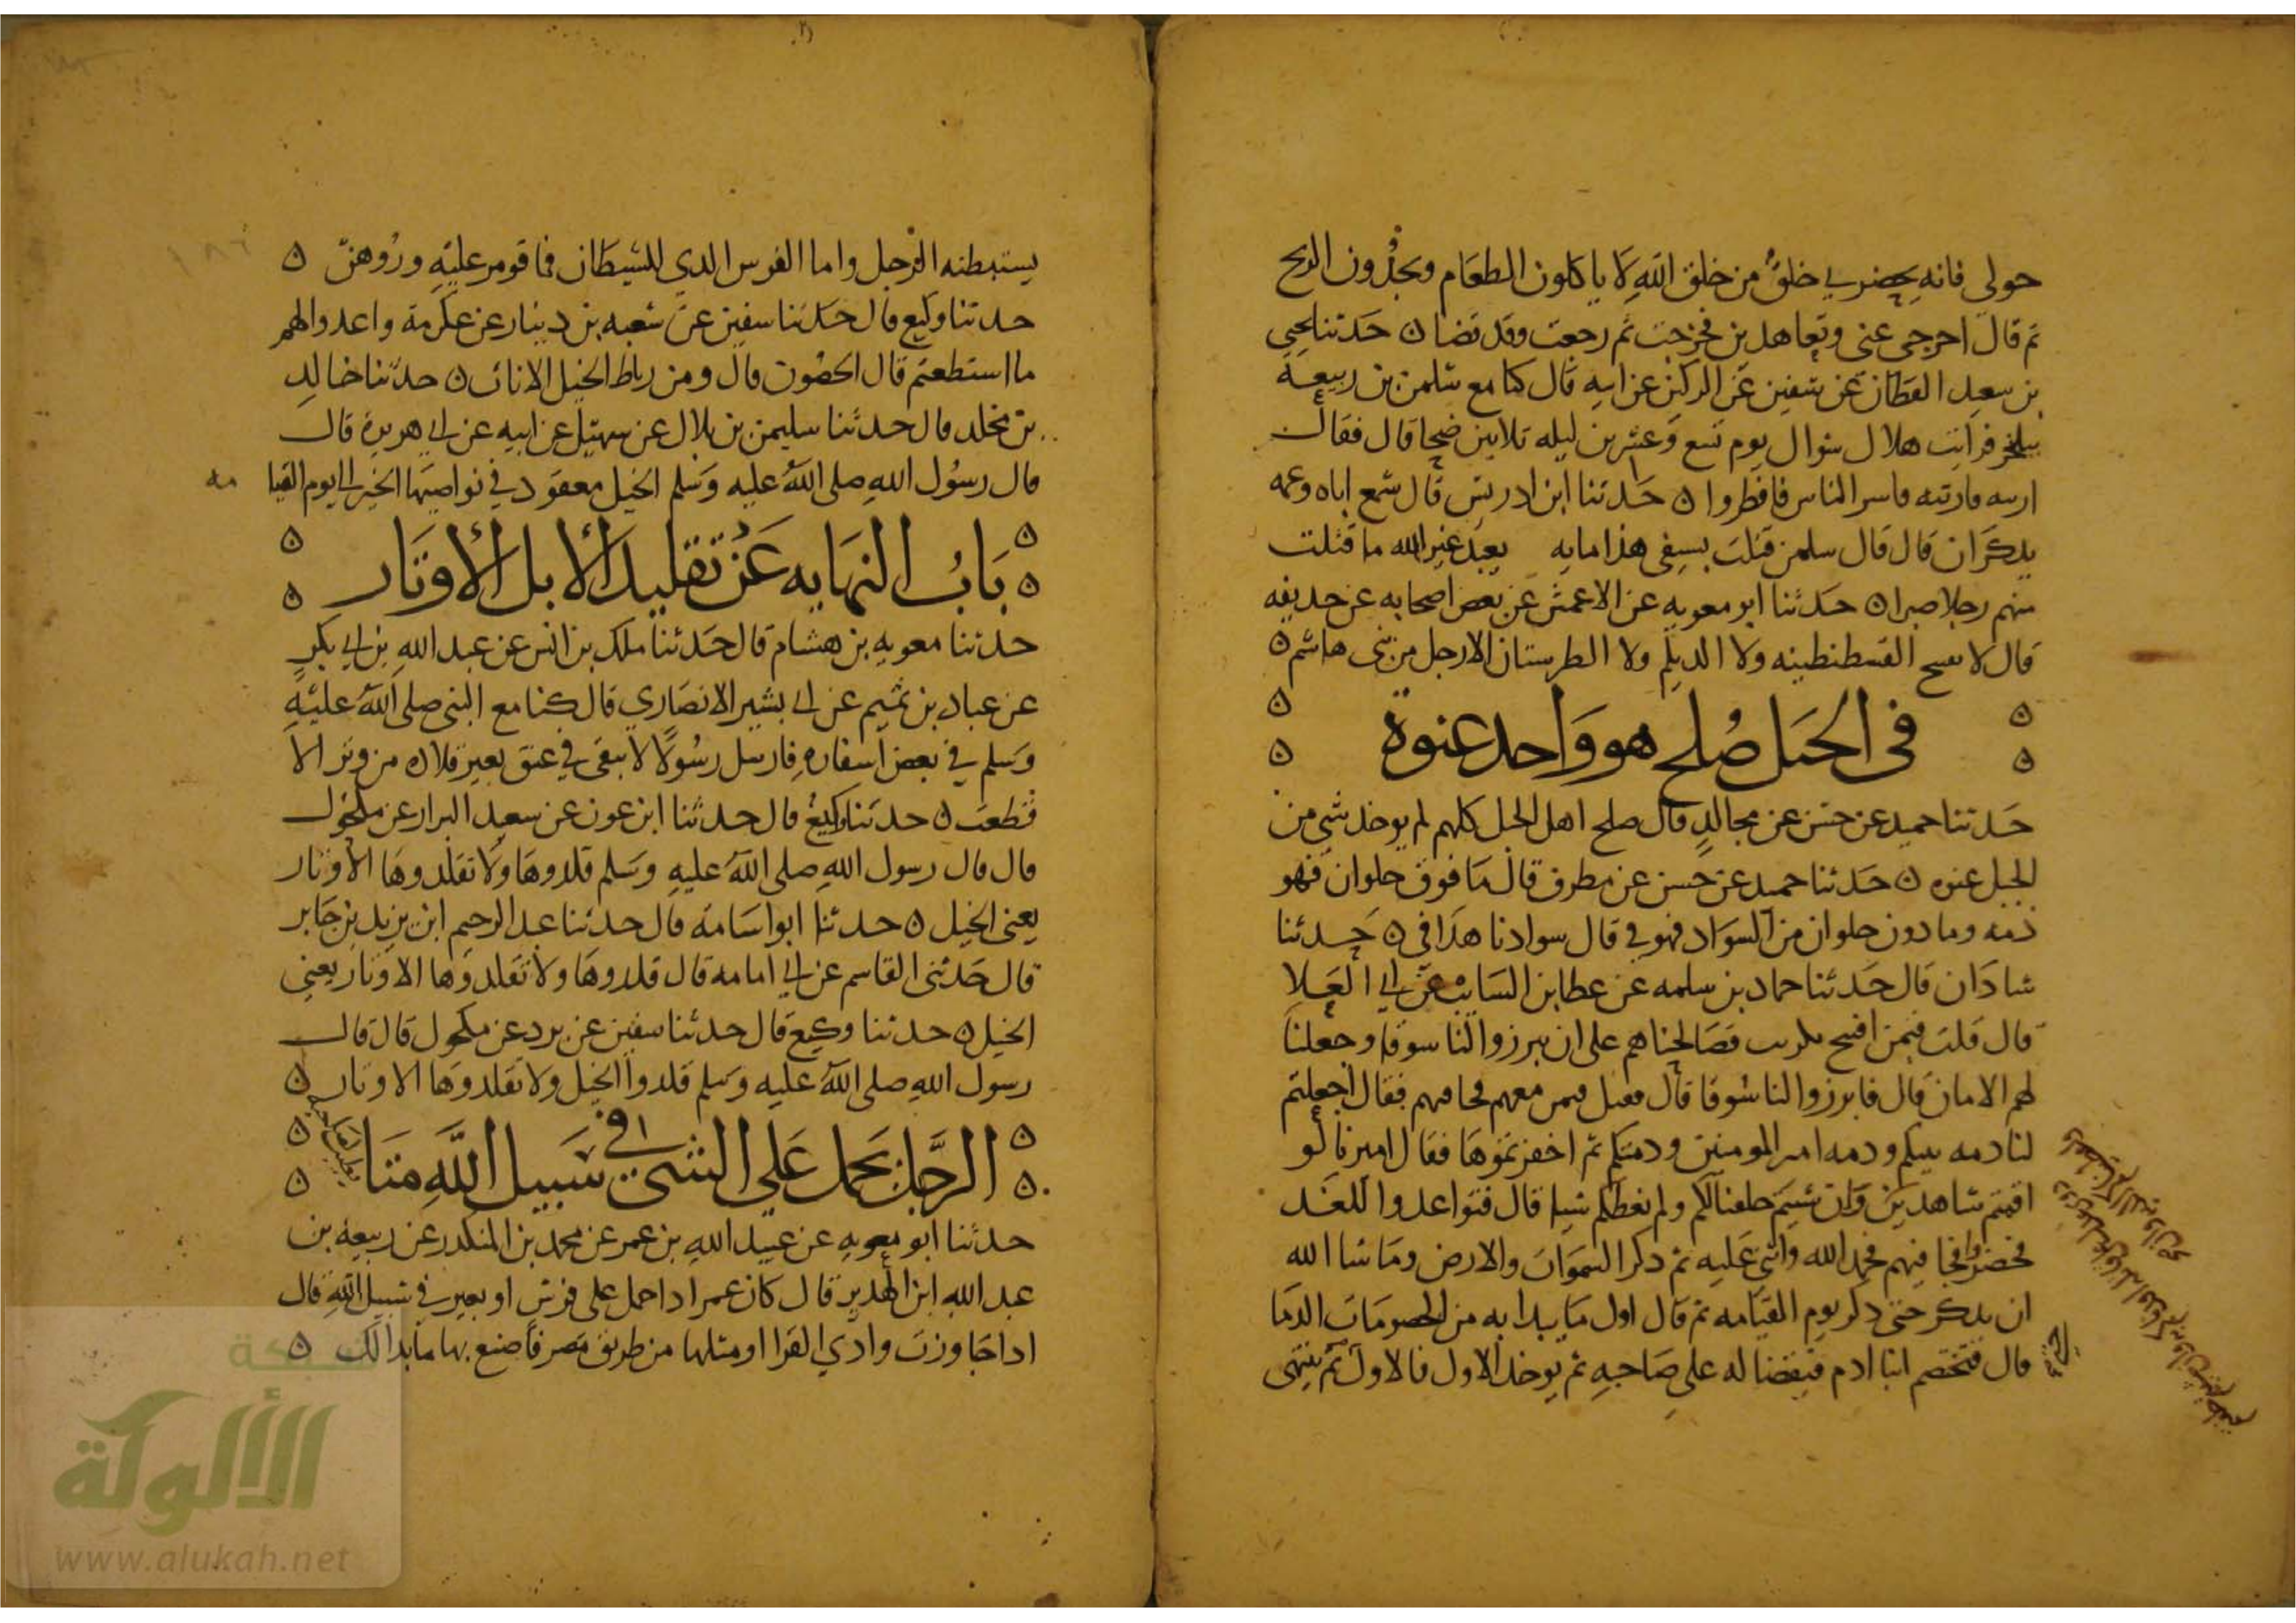 حولى فانه يحضرني خلق من خلق الله لا ياكلون الطعام ويجدون الريح
ثم قال اخرجى عنى وتعاهدين فخرجت ثم رجعت وقد قضا ن حدثنا يحيى
بن سعيد القطان عن سفين عن الركين عن ابيه قال كنا مع سلمن بن ربيعة
ببلنجر فرايت هلال شوال يوم تسع وعشرين ليله ثلاثين ضحا قال فقال
ارنيه فاريته فامر الناس فافطروا ن حدثنا ابن ادريس قال سمع اباه وعمه
يذكران قال قال سلمن قتلت بسيفى هذا مايه يعبد غير الله ما قتلت
منهم رجلا صبرا ن حدثنا ابو معويه عن الاعمش عن بعض اصحابه عن حذيفه
قال لا تفتح القسطنطينه ولا الديلم ولا الطبرستان الا رجل من بنى هاشم ن
فى الجبل صلح هو واحد عنوة
حدثنا حميد عن حسن عن مجالد قال صلح اهل الجبل كلهم لم يوخذ شي من
الجبل عنوه ن حدثنا حميد عن حسن عن مطرف قال ما فوق حلوان فهو
ذمه وما دون حلوان من السواد فهو في قال سوادنا هذا في ن حدثنا
شاذان قال حدثنا حماد بن سلمه عن عطا بن السايب عن ابي العلا
قال قلت فيمن افتتح تكريت فصالحناهم على ان يبرزوا لنا سوقا وجعلنا
لهم الامان قال فابرزوا لنا سوقا قال فقتل قين منهم فجا قسهم فقال اجعلتم
لنا ذمه نبيكم وذمه امير المومنين وذمتكم ثم اخفرتموها فقال اميرنا لو
اقمتم شاهدين وان شيتم حلفنا لكم ولم نعطكم شيا قال فتواعدوا للغد
فحضروا فجا قسهم فحمد الله واثنى عليه ثم ذكر السموات والارض وما شا الله
ان يذكر حتى ذكر يوم القيامه ثم قال اول ما يبدا به من الخصومات الدما
قال فتختصم ابنا ادم فيقضا له على صاحبه ثم يوخذ الاول فالاول ثم ينتهى
يستبطنه الرجل واما الفرس الذي للشيطان فما قومر عليه وروهن ن
حدثنا وكيع قال حدثنا سفين عن شعبه بن دينار عن عكرمة واعدوا لهم
ما استطعتم قال الحصون قال ومن رباط الخيل الاناث ن حدثنا خالد
بن مخلد قال حدثنا سليمن بن بلال عن سهيل عن ابيه عن ابي هريرة قال
قال رسول الله صلى الله عليه وسلم الخيل معقود في نواصيها الخير الى يوم القيا مه
باب النهايه عن تقليد الابل الاوتار
حدثنا معويه بن هشام قال حدثنا ملك بن انس عن عبد الله بن ابي بكر
عن عباد بن تميم عن ابي بشير الانصاري قال كنا مع النبى صلى الله عليه
وسلم في بعض اسفاره فارسل رسولا لا يبقى في عنق بعير قلاده من وتر الا
قطعت ن حدثنا وكيع قال حدثنا ابن عون عن سعيد البزار عن مكحول
قال قال رسول الله صلى الله عليه وسلم قلدوها ولا تقلدوها الاوتار
يعنى الخيل ن حدثنا ابو اسامة قال حدثنا عبد الرحيم ابن يزيد بن جابر
قال حدثنى القاسم عن ابي امامه قال قلدوها ولا تقلدوها الاوتار يعنى
الخيل ن حدثنا وكيع قال حدثنا سفين عن برد عن مكحول قال قال
رسول الله صلى الله عليه وسلم قلدوا الخيل ولا تقلدوها الاوتار ن
الرجل يحمل على الشي في سبيل الله متا
حدثنا ابو معويه عن عبيد الله بن عمر عن محمد بن المنكدر عن ربيعة بن
عبد الله ابن الهدير قال كان عمر اذا حمل على فرس او بعير في سبيل الله قال
اذا جاوزت وادي القرا او مثلها من طريق مصر فاصنع بها ما بدا لك ن
شبكة
الألوكة
www.alukah.net